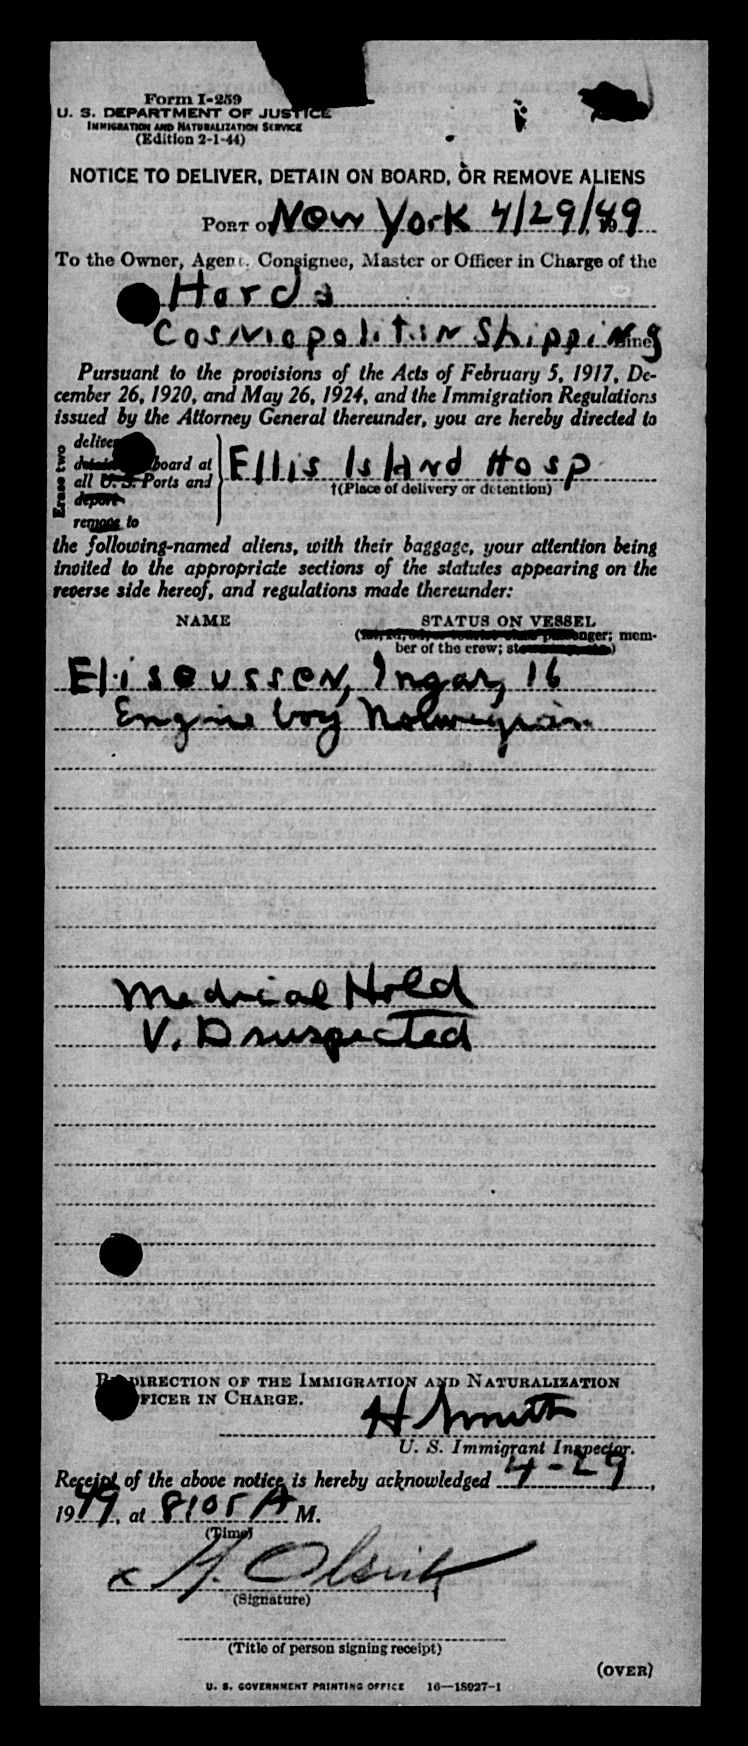 Form I-259
U. S. DEPARTMENT OF JUSTICE
IMMIGRATION AND NATURALIZATION SERVICE
(Edition 2-1-44)
NOTICE TO DELIVER, DETAIN ON BOARD, OR REMOVE ALIENS
PORT OF New York 4/29/49
To the Owner, Agent, Consignee, Master or Officer in Charge of the
Harda
Cosmopolitan Shipping Line
Pursuant to the provisions of the Acts of February 5, 1917, De-
cember 26, 1920, and May 26, 1924, and the Immigration Regulations
issued by the Attorney General thereunder, you are hereby directed to
Erase two
deliver
detain board at
all U. S. Ports and
deport
remove to
Ellis Island Hosp
†(Place of delivery or detention)
the following-named aliens, with their baggage, your attention being
invited to the appropriate sections of the statutes appearing on the
reverse side hereof, and regulations made thereunder:
NAME STATUS ON VESSEL
passenger; mem-
ber of the crew;
Eliseussen, Ingar, 16
Engine boy Norwegian
Medical Hold
V. D suspected
DIRECTION OF THE IMMIGRATION AND NATURALIZATION
OFFICER IN CHARGE.
H Smith
U. S. Immigrant Inspector.
Receipt of the above notice is hereby acknowledged 4-29,
1949, at 8:05 A M.
(Time)
x
(Signature)
(Title of person signing receipt)
(OVER)
U. S. GOVERNMENT PRINTING OFFICE 16—18927-1